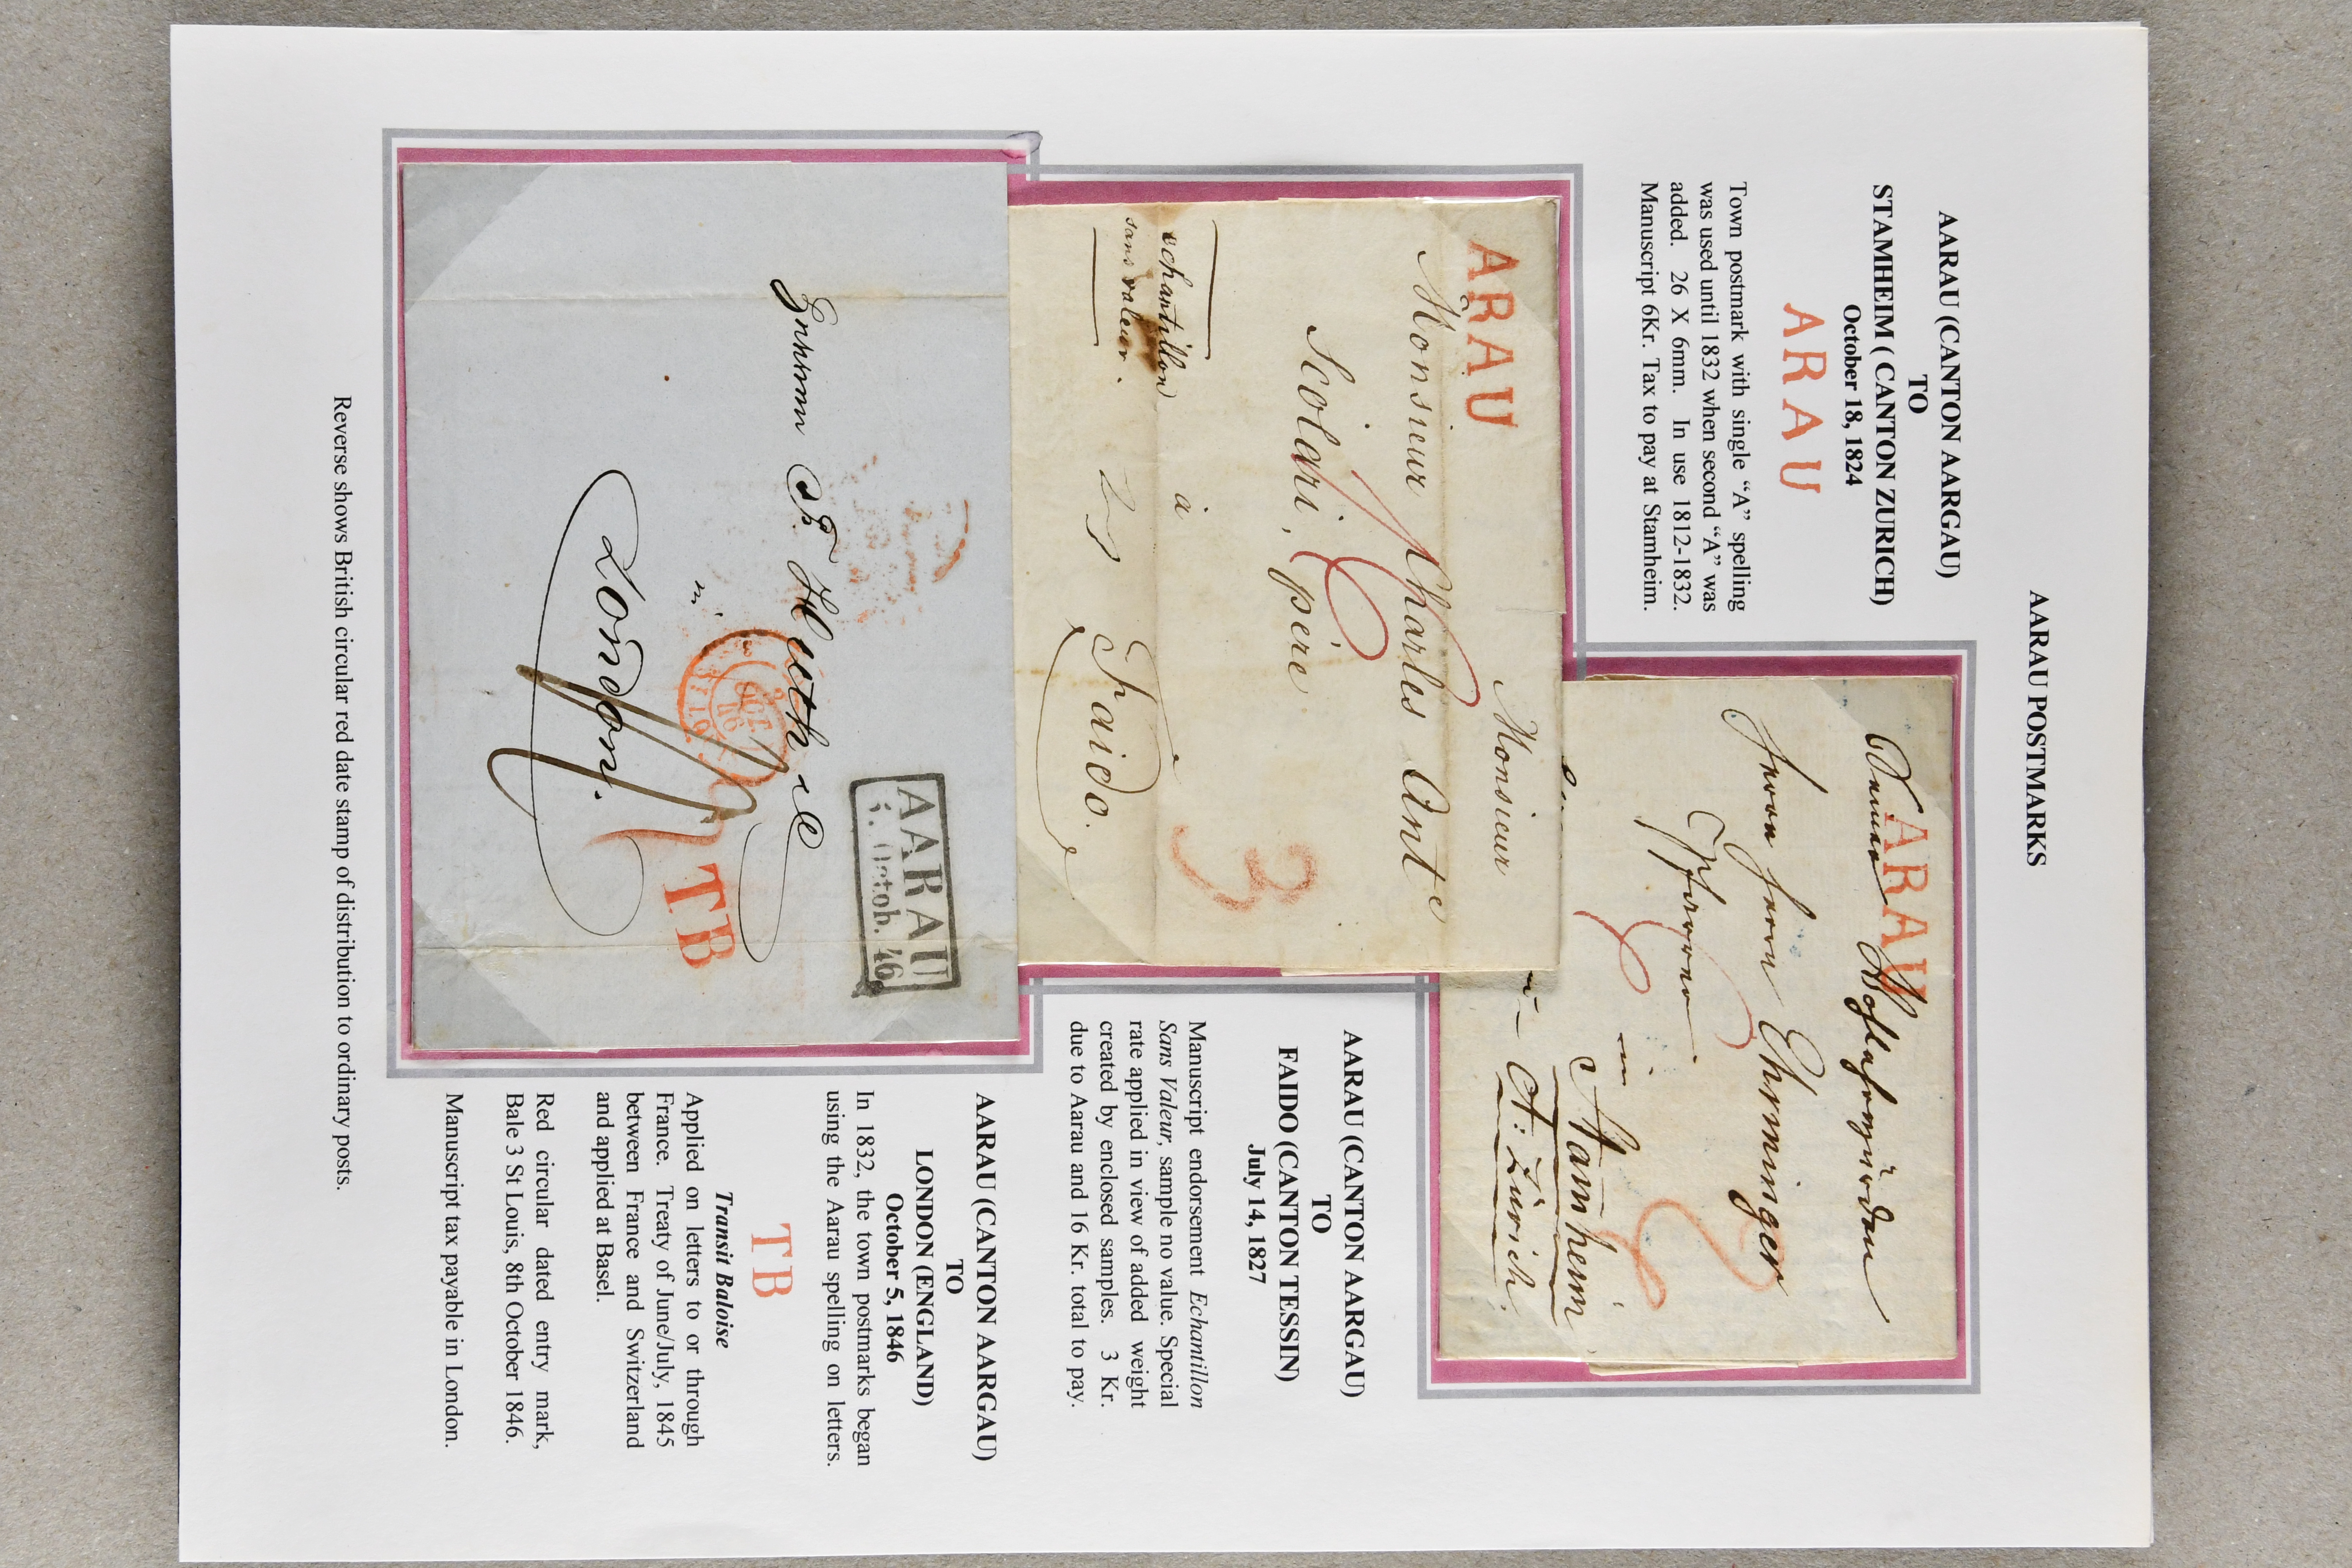 AARAU POSTMARKS
AARAU (CANTON AARGAU)
TO
STAMHEIM ( CANTON ZURICH)
October 18, 1824
ARAU
Town postmark with single “A” spelling
was used until 1832 when second “A” was
added. 26 X 6mm. In use 1812-1832.
Manuscript 6Kr. Tax to pay at Stamheim.
ARAU
Ehrminger
Pfarrer
in
Stamheim
Ct: Zürich.
ARAU
Monsieur
Monsieur Charles Ant
Scolari, père
à
Faido.
echantillon
sans valeur.
3
AARAU (CANTON AARGAU)
TO
FAIDO (CANTON TESSIN)
July 14, 1827
Manuscript endorsement Echantillon
Sans Valeur, sample no value. Special
rate applied in view of added weight
created by enclosed samples. 3 Kr.
due to Aarau and 16 Kr. total to pay.
AARAU
5. Octob. 46
Huth
in
London.
TB
AARAU (CANTON AARGAU)
TO
LONDON (ENGLAND)
October 5, 1846
In 1832, the town postmarks began
using the Aarau spelling on letters.
TB
Transit Baloise
Applied on letters to or through
France. Treaty of June/July, 1845
between France and Switzerland
and applied at Basel.
Red circular dated entry mark,
Bale 3 St Louis, 8th October 1846.
Manuscript tax payable in London.
Reverse shows British circular red date stamp of distribution to ordinary posts.